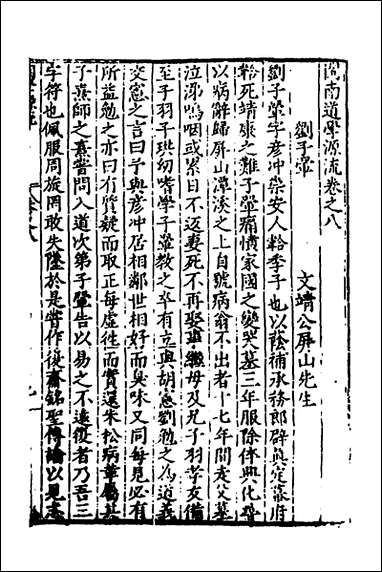 閩南道學源流卷之八
文靖公屏山先生
劉子翬
劉子翬字彥冲崇安人韐季子也以蔭補承務郎辟真定幕府
韐死靖康之難子翬痛憤家國之變哭墓三年服除倅興化尋
以病辭歸屏山潭溪之上自號病翁不出者十七年間走父墓
泣涕嗚咽或累日不返妻死不再娶事繼母及兄子羽孝友備
至子羽子珙幼嗜學子翬教之卒有立與胡憲劉勉之為道義
交憲之言曰予與彥冲居相鄰世相好而臭味又同每見必有
所益勉之亦曰有質疑而取正每虛徃而實還朱松病革屬其
子熹師之熹嘗問入道次第子翬告以易之不遠復者乃吾三
字符也佩服周旋罔敢失墜於是嘗作復齋銘聖傳論以見志